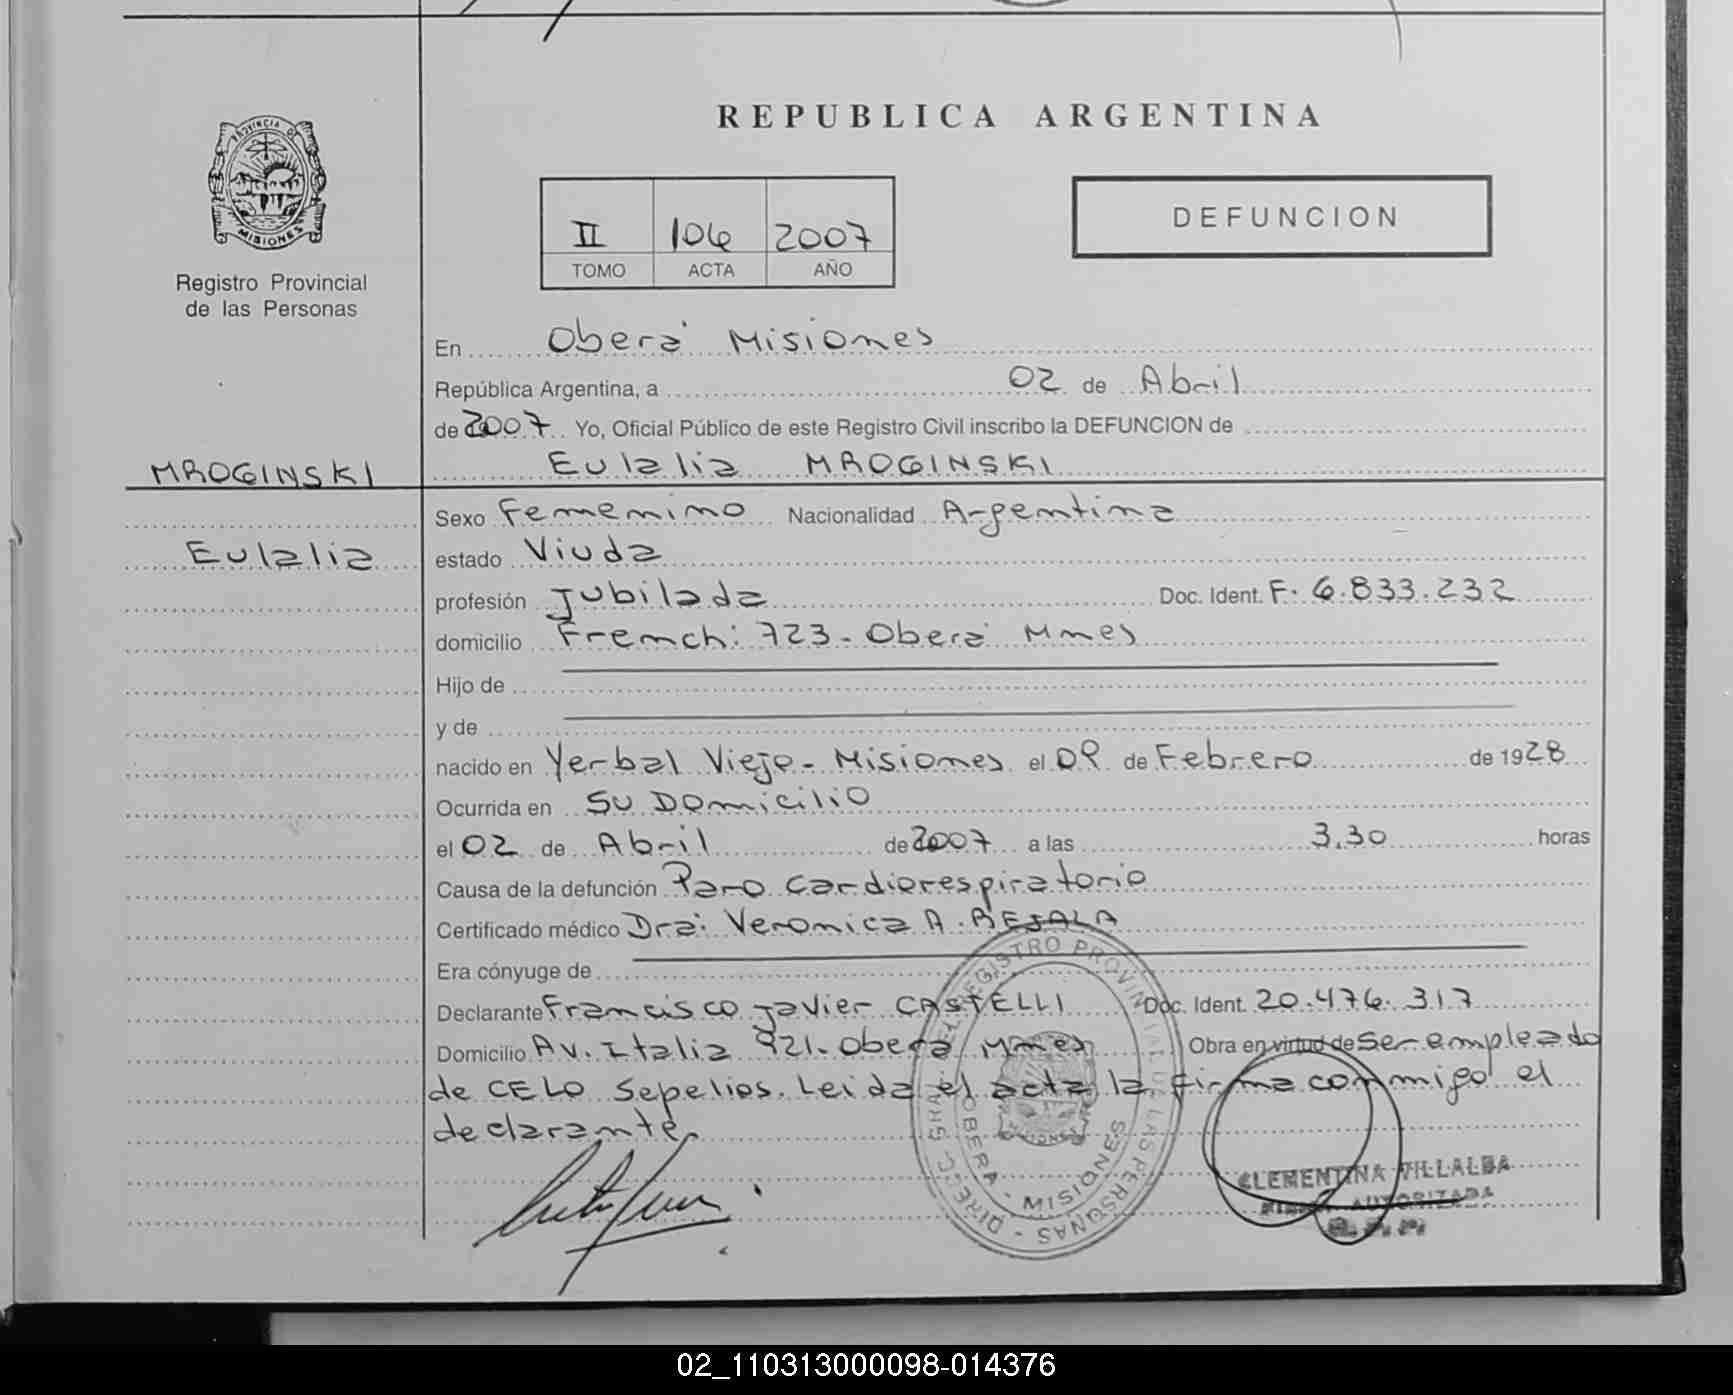 PROVINCIA DE
MISIONES
Registro Provincial
de las Personas
REPUBLICA ARGENTINA
II 106 2007
TOMO ACTA AÑO
DEFUNCION
En Oberá Misiones
República Argentina, a 02 de Abril
de 2007 Yo, Oficial Público de este Registro Civil inscribo la DEFUNCION de
MROGINSKI
Eulalia MROGINSKI
Eulalia
Sexo Femenino Nacionalidad Argentina
estado Viuda
profesión Jubilada Doc. Ident. F. 6.833.232
domicilio French: 723 - Oberá Mnes
Hijo de
y de
nacido en Yerbal Viejo - Misiones el 09 de Febrero de 1928
Ocurrida en SU DOmicilio
el 02 de Abril de 2007 a las 3,30 horas
Causa de la defunción Paro cardiorespiratorio
Certificado médico Dra: Veronica A. BEJALA
Era cónyuge de
Declarante Francisco Javier CASTELLI Doc. Ident. 20.476.317
Domicilio Av. Italia 921- Oberá Mnes Obra en virtud de Ser empleado
de CELO Sepelios. Leida el acta la firma conmigo el
declarante
REGISTRO PROVINCIAL DE LAS PERSONAS
OBERA - MISIONES
MISIONES
CLEMENTINA VILLALBA
FIRMA AUTORIZADA
02_110313000098-014376